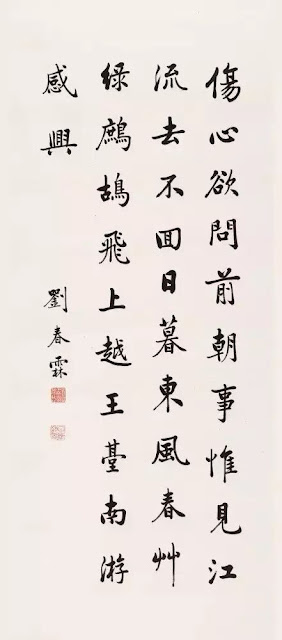 傷心欲問前朝事惟見江
流去不囬日暮東風春艸
綠鷓鴣飛上越王臺南游
感興
劉春霖